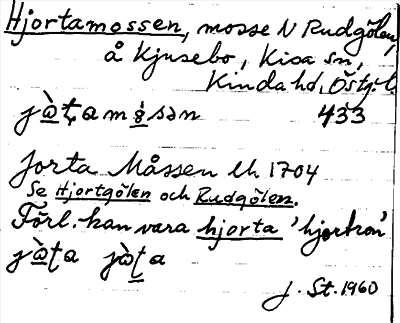 Hjortamossen, mosse N Rudgölen,
å Kjusebo, Kisa sn,
Kinda hd, Östg. l.
433
Jorta Måssen Uh 1704
Se Hjortgölen och Rudgölen.
Förl. kan vara hjorta 'hjortron'
J. St. 1960